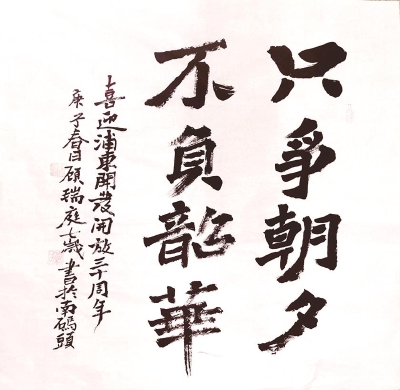 只爭朝夕
不負韶華
喜迎浦東開發开放三十周年
庚子春日顾瑞庭七十歲書於南碼頭